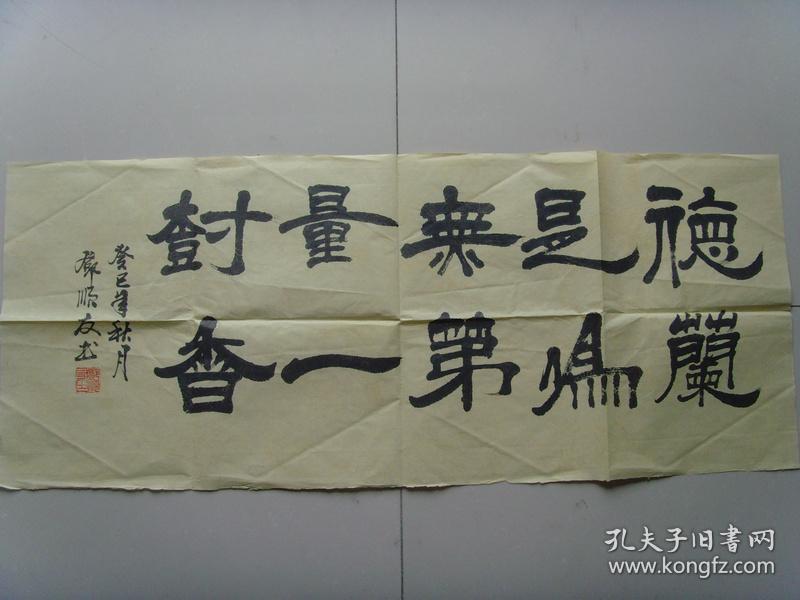 德是無量尌
蘭為第一香
癸巳年秋月
順友书
孔夫子旧書网
www.kongfz.com